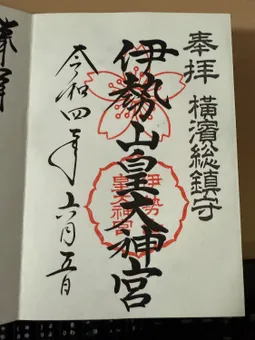 奉拝 横濱総鎮守
伊勢山皇大神宮
伊勢山
皇大神宮
令和四年六月五日